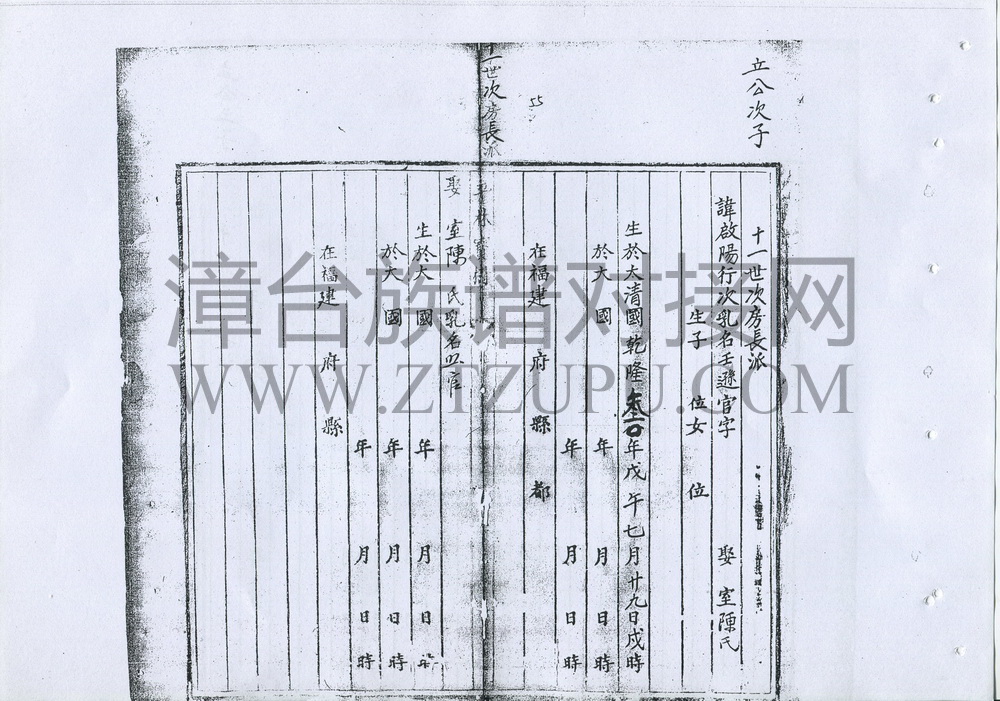 立公次子
十一世次房長派
諱啟陽行次乳名壬遜官字 娶 室陳氏
生子 位女 位
生於太清國乾隆 年戊午七月廿九日戌時
於大 國 年 月 日 時
年 月 日 時
在福建 府 縣 都
55
十一世次房長派
平林
娶 室陳 氏乳名 官
生於太 國 年 月 日 時
於大 國 年 月 日 時
年 月 日 時
在福建 府 縣
漳台族谱对接网
WWW.ZTZUPU.COM